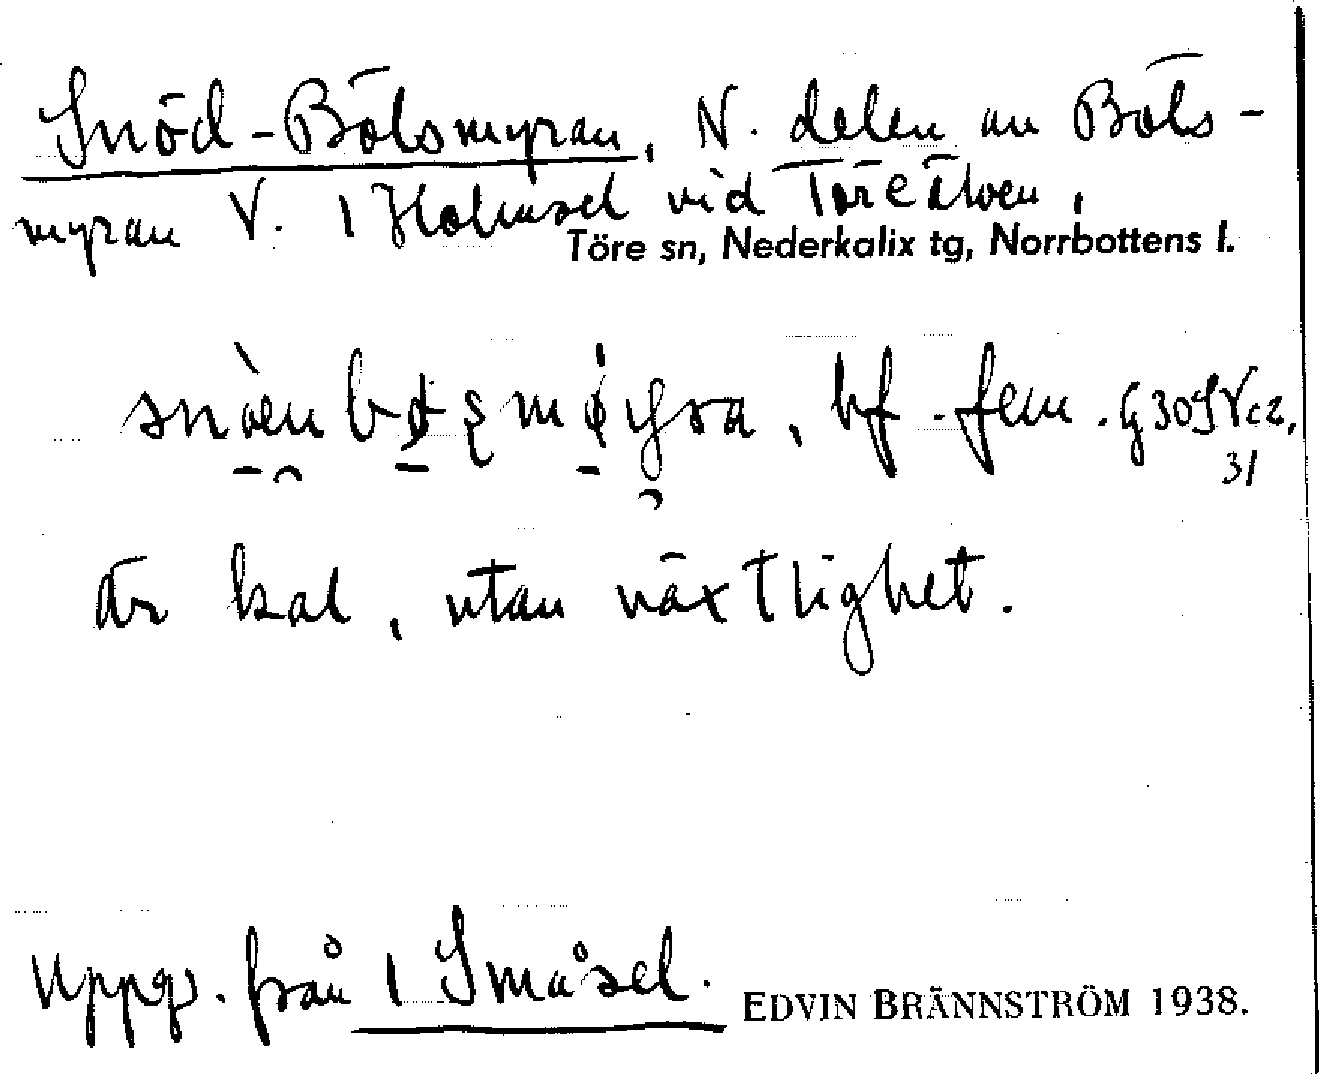 Snöd-Bölsmyran, N. delen av Böls-
myran V. 1 Hålmsel vid Töre älven,
Töre sn, Nederkalix tg, Norrbottens l.
bf. fem.
31
är kal, utan växtlighet.
Uppg. från 1 Småsel.
EDVIN BRÄNNSTRÖM 1938.